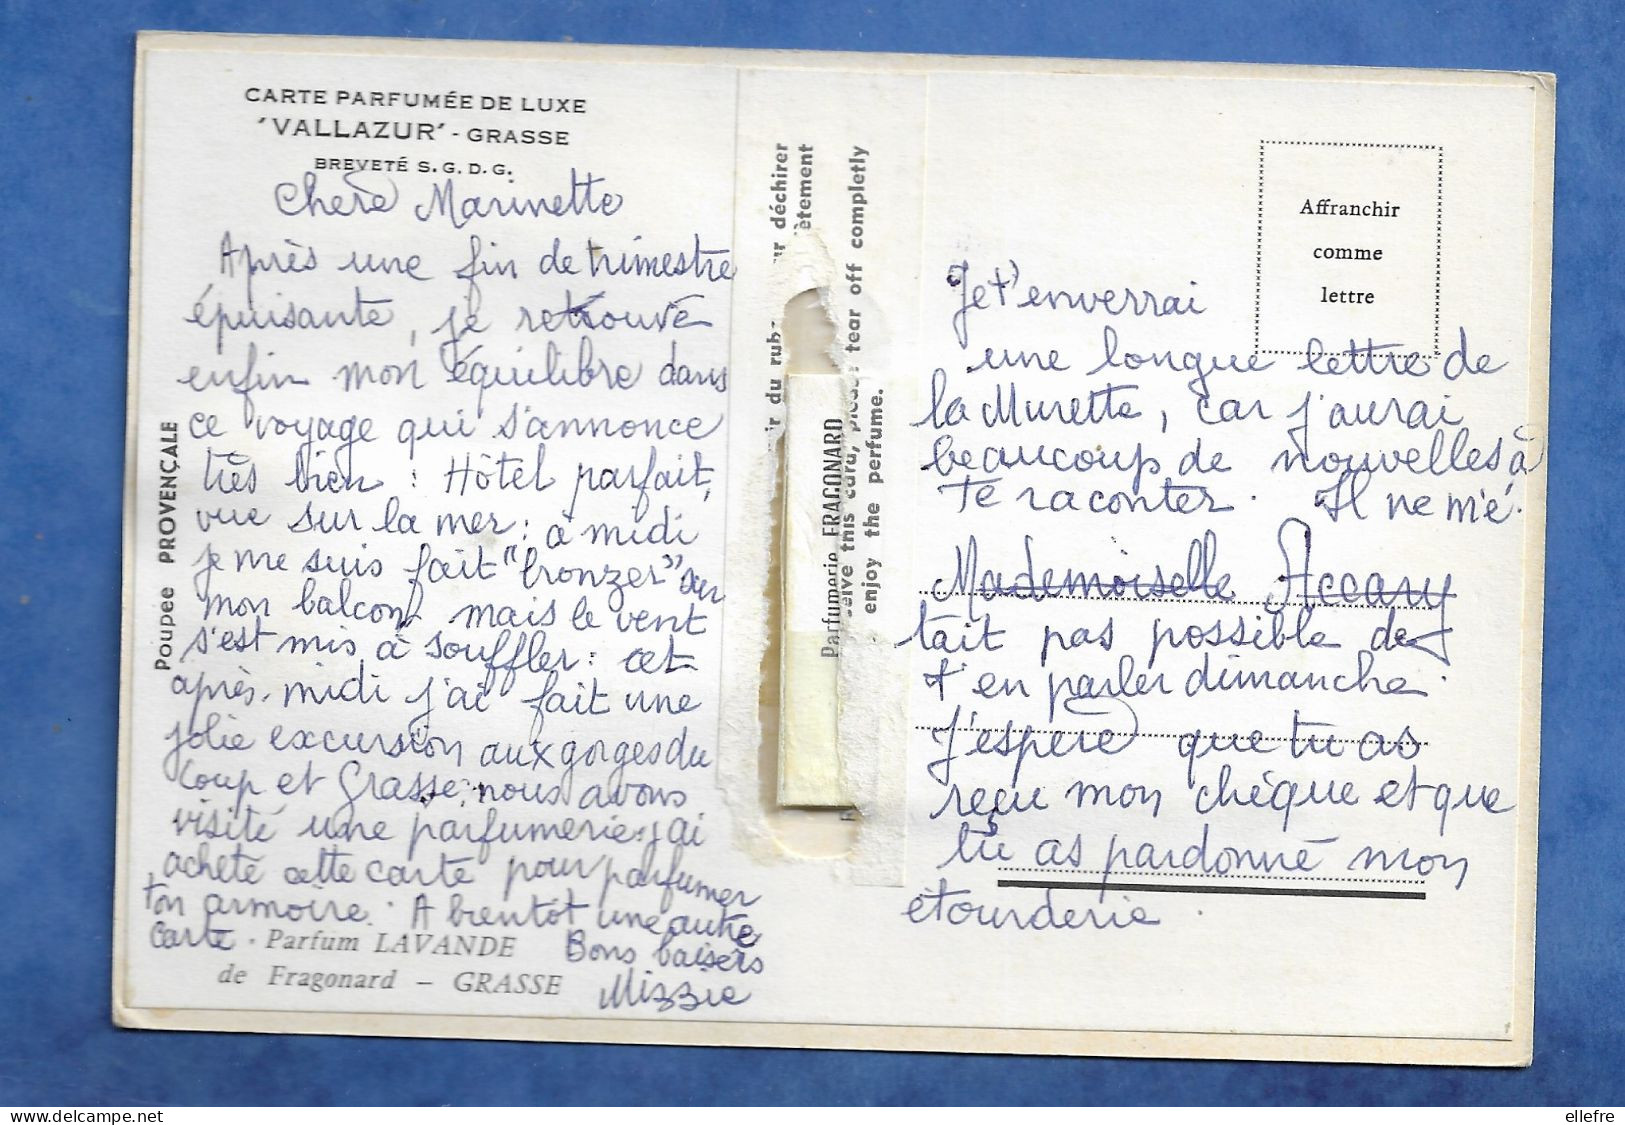 CARTE PARFUMÉE DE LUXE
'VALLAZUR' - GRASSE
BREVETÉ S. G. D. G.
Chère Marinette
Après une fin de trimestre
épuisante, je retrouve
enfin mon équilibre dans
ce voyage qui s'annonce
très bien : Hôtel parfait,
vue sur la mer : à midi
je me suis fait "bronzer" sur
mon balcon mais le vent
s'est mis à souffler : cet
après-midi j'ai fait une
jolie excursion aux gorges du
Loup et Grasse : nous avons
visité une parfumerie : j'ai
acheté cette carte pour parfumer
ton armoire. A bientôt une autre
carte. Bons baisers
Mizzie
Parfum LAVANDE
de Fragonard - GRASSE
Poupee PROVENÇALE
déchirer
ètement
tear off completly
this card,
enjoy the perfume.
Parfumerie FRAGONARD
Affranchir
comme
lettre
Je t'enverrai
une longue lettre de
la Murette, car j'aurai
beaucoup de nouvelles à
te raconter. Il ne m'é-
Mademoiselle Accary
tait pas possible de
t'en parler dimanche.
J'espère que tu as
reçu mon chèque et que
tu as pardonné mon
étourderie.
ellefre